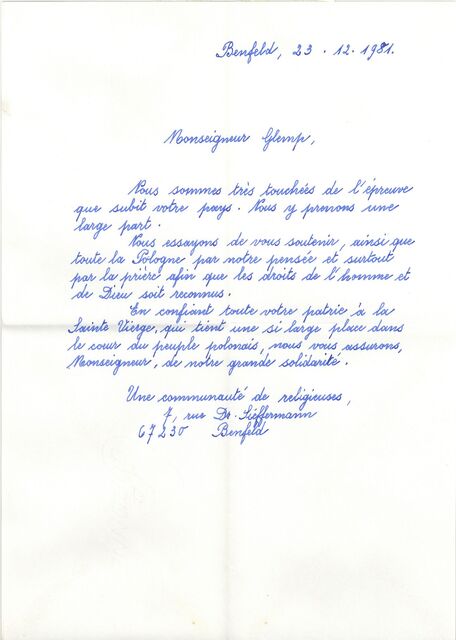 Benfeld, 23.12.1981.
Monseigneur Glemp,
Nous sommes très touchées de l'épreuve
que subit votre pays. Nous y prenons une
large part.
Nous essayons de vous soutenir, ainsi que
toute la Pologne par notre pensée et surtout
par la prière afin que les droits de l'homme et
de Dieu soit reconnus.
En confiant toute votre patrie à la
Sainte Vierge, qui tient une si large place dans
le cœur du peuple polonais, nous vous assurons,
Monseigneur, de notre grande solidarité.
Une communauté de religieuses,
7, rue Dr. Sieffermann
67230 Benfeld